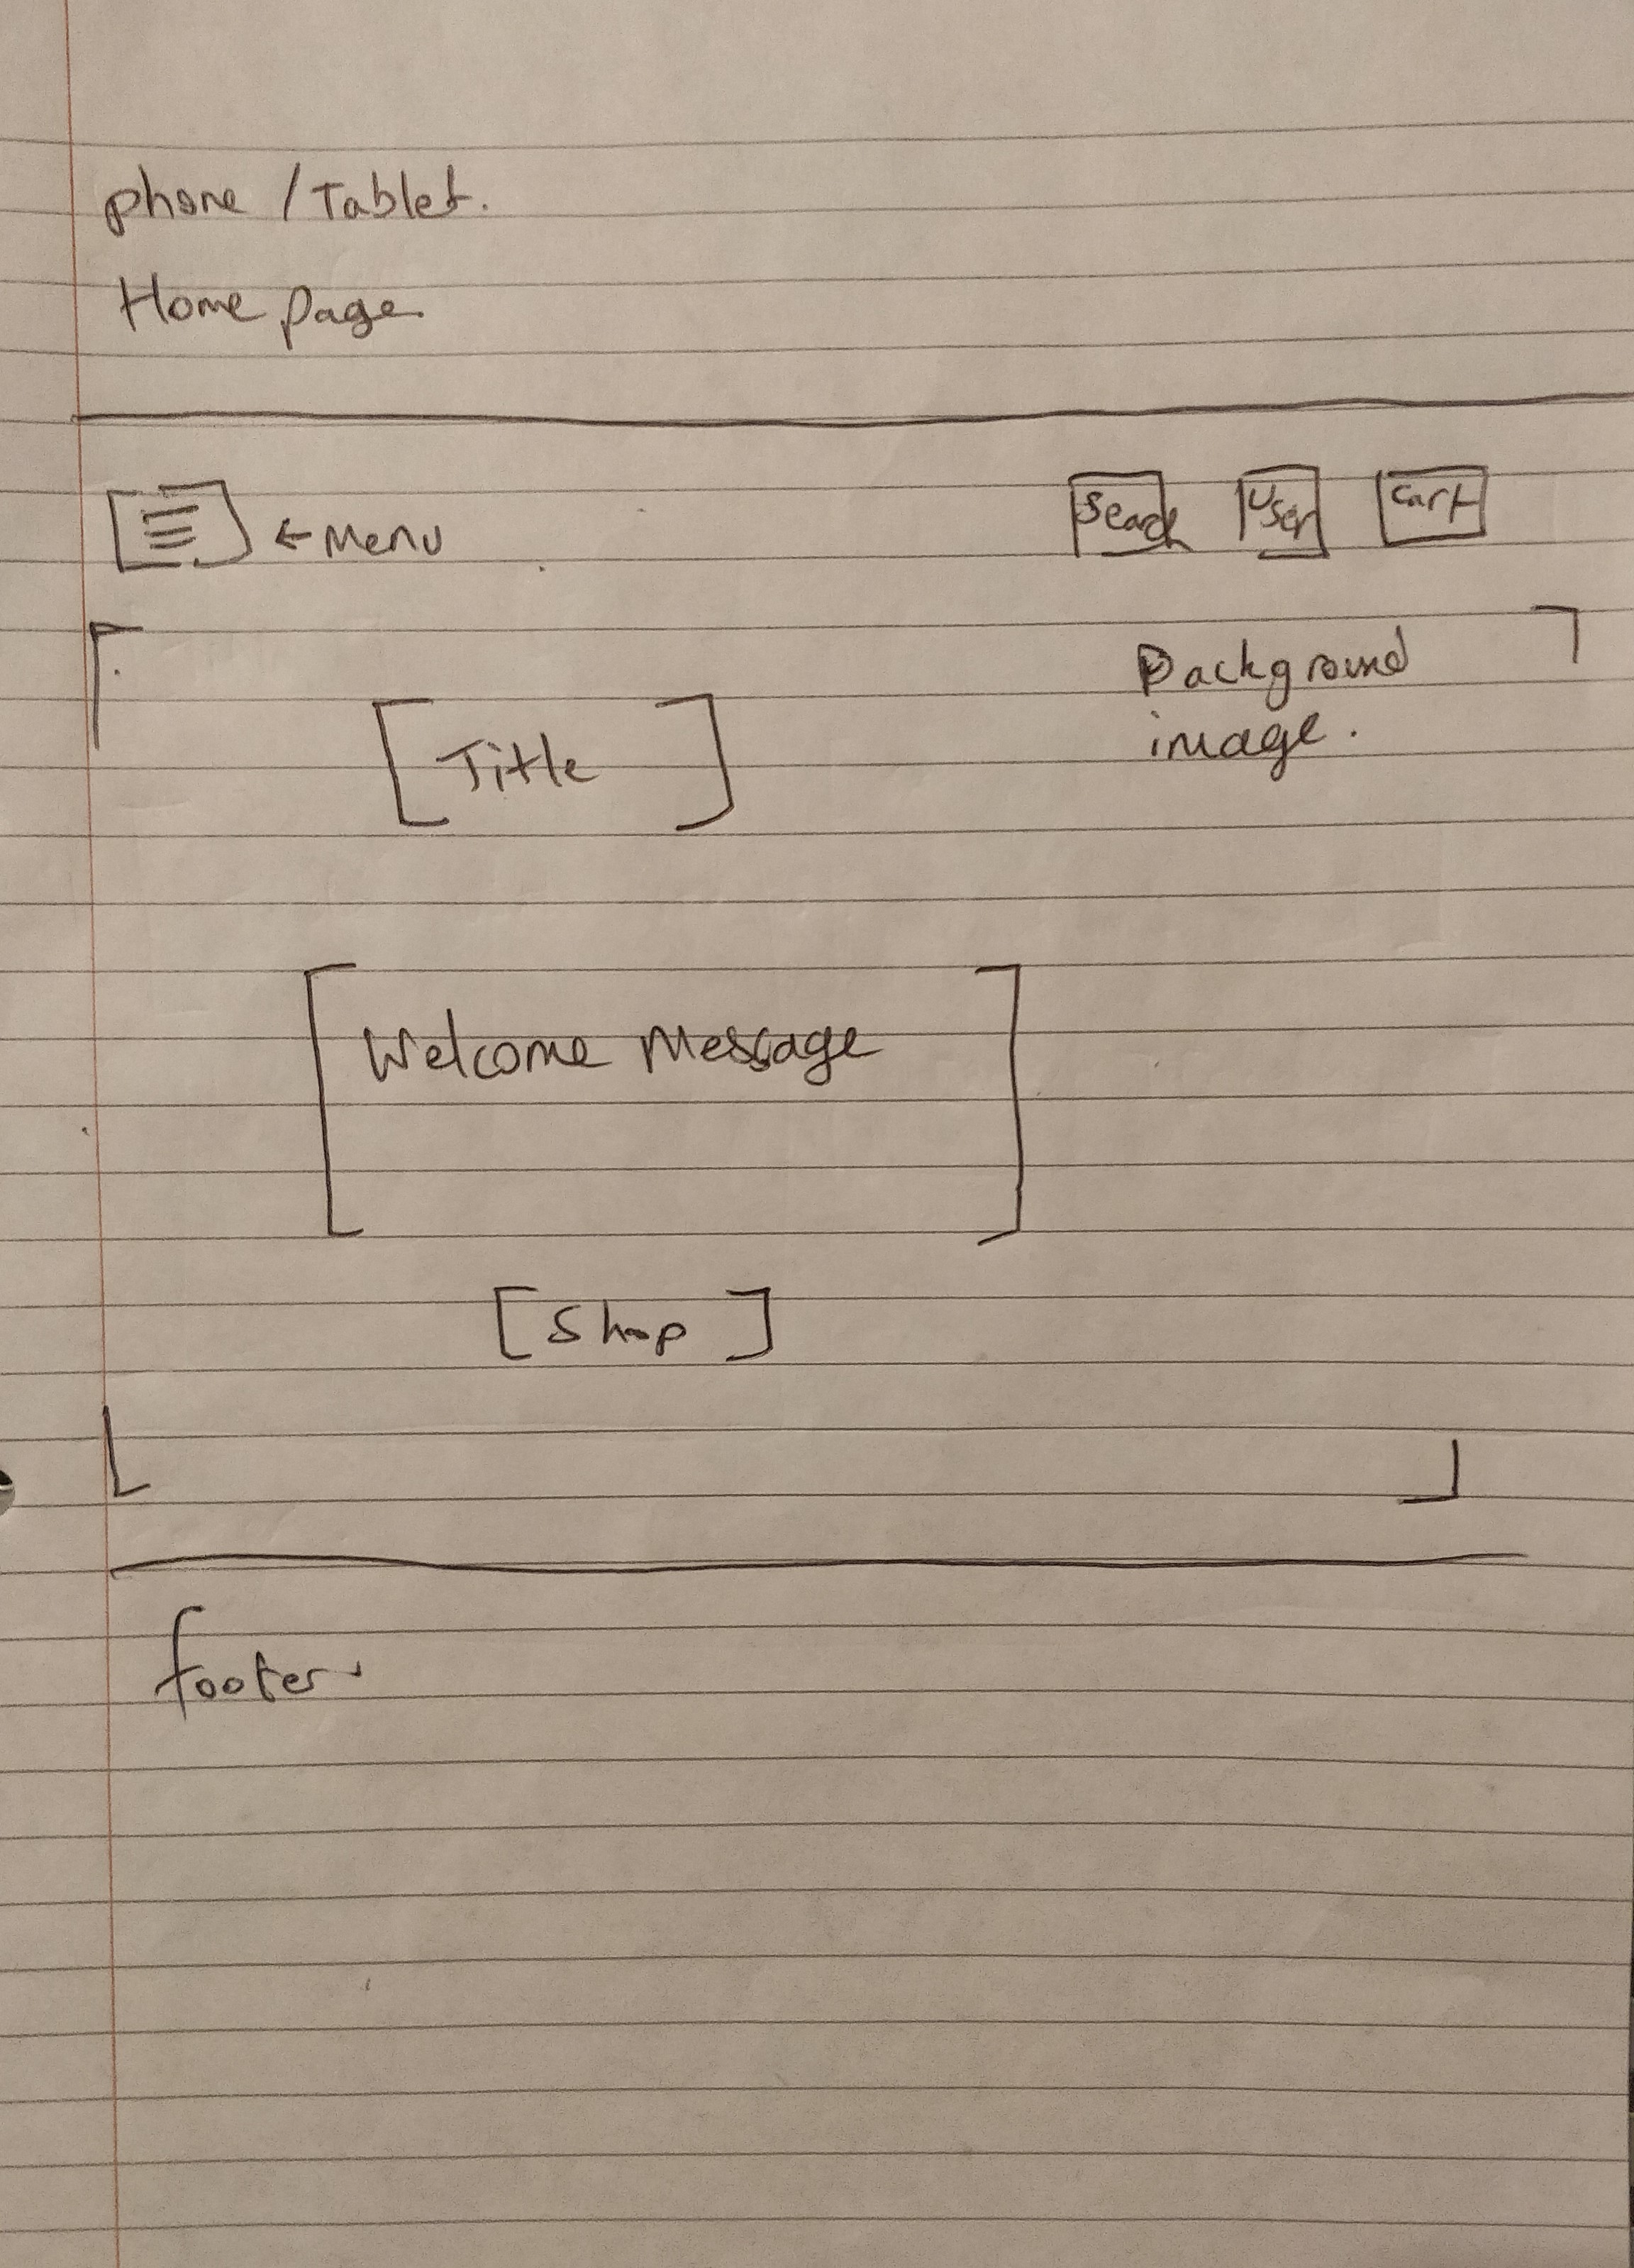 phone / Tablet.
Home page.
← Menu
Search User Cart
Background
image.
Title
Welcome Message
[Shop]
footer.